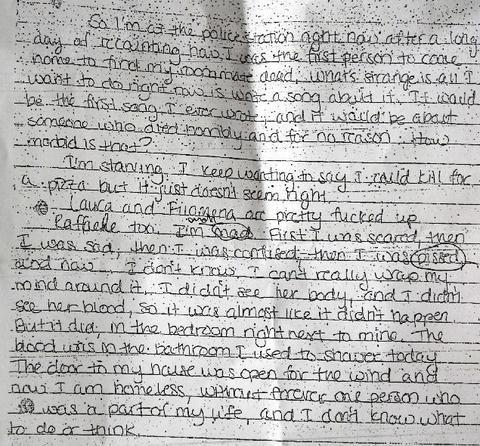 So I'm at the police station right now after a long
day of recounting how I was the first person to come
home to find my roommate dead. What's strange is all I
want to do right now is write a song about it. It would
be the first song I ever wrote, and it would be about
someone who died horribly and for no reason. How
morbid is that?
I'm starving. I keep wanting to say I could kill for
a pizza but it just doesn't seem right.
Laura and Filomena are pretty fucked up.
Raffaele too. I'm mad. First I was scared, then
I was sad, then I was confused, then I was pissed
and now... I don't know. I can't really wrap my
mind around it. I didn't see her body, and I didn't
see her blood, so it was almost like it didn't happen.
But it did. in the bedroom right next to mine. The
blood was in the bathroom I used to shower today.
The door to my house was open for the wind and
now I am homeless, without forever one person who
was a part of my life, and I don't know what
to do or think.